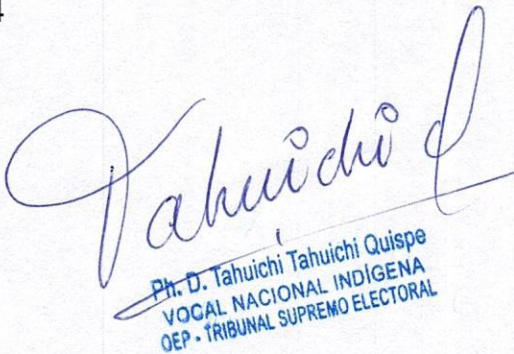 Tahuichi Q
Ph. D. Tahuichi Tahuichi Quispe
VOCAL NACIONAL INDÍGENA
OEP - TRIBUNAL SUPREMO ELECTORAL